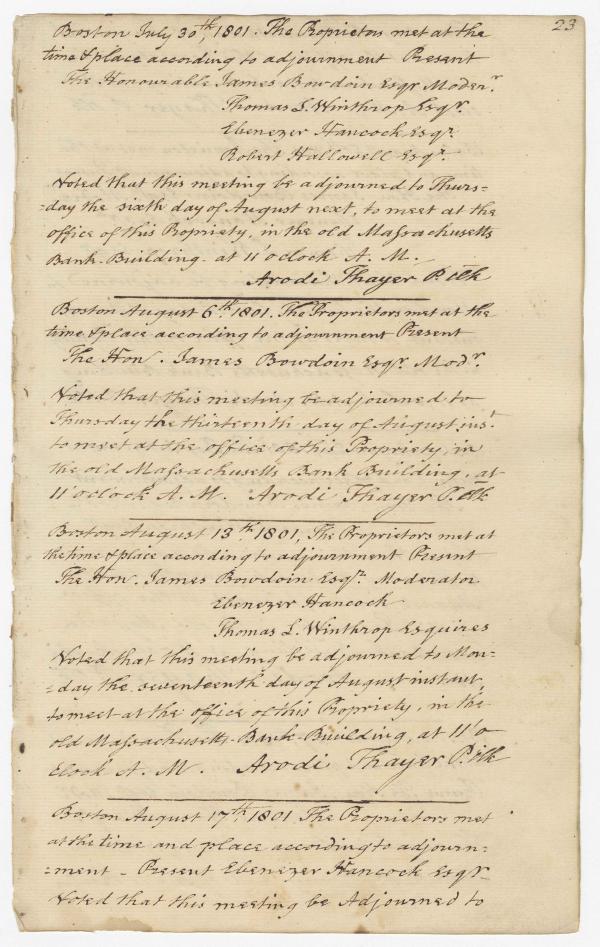 23
Boston July 30th, 1801. The Proprietors met at the
time & place according to adjournment Present
The Honourable James Bowdoin Esqr Moder.r
Thomas L. Winthrop Esqr.
Ebenezer Hancock Esqr.
Robert Hallowell Esqr.
Voted that this meeting be adjourned to Thurs=
=day the sixth day of August next, to meet at the
office of this Propriety, in the old Massachusetts
Bank-Building - at 11 'oclock A. M.
Arodi Thayer P. Clk
Boston August 6th. 1801. The Proprietors met at the
time & place according to adjournment Present
The Hon. James Bowdoin Esqr. Modr.
Voted that this meeting be adjourned to
Thursday the thirteenth day of August, inst
to meet at the office of this Propriety, in
the old Massachusetts Bank Building, at
11 'oclock A. M. Arodi Thayer P. Clk
Boston August 13th. 1801, The Proprietors met at
the time & place according to adjournment Present
The Hon. James Bowdoin Esqr. Moderator
Ebenezer Hancock
Thomas L. Winthrop Esquires
Voted that this meeting be adjourned to Mon=
=day the seventeenth day of August instant,
to meet at the office of this Propriety, in the
old Massachusetts-Bank-Building, at 11 'o
Clock A. M. Arodi Thayer P. Clk
Boston August 17th, 1801 The Proprietors met
at the time and place according to adjourn=
=ment - Present Ebenezer Hancock Esqr
Voted that this meeting be Adjourned to